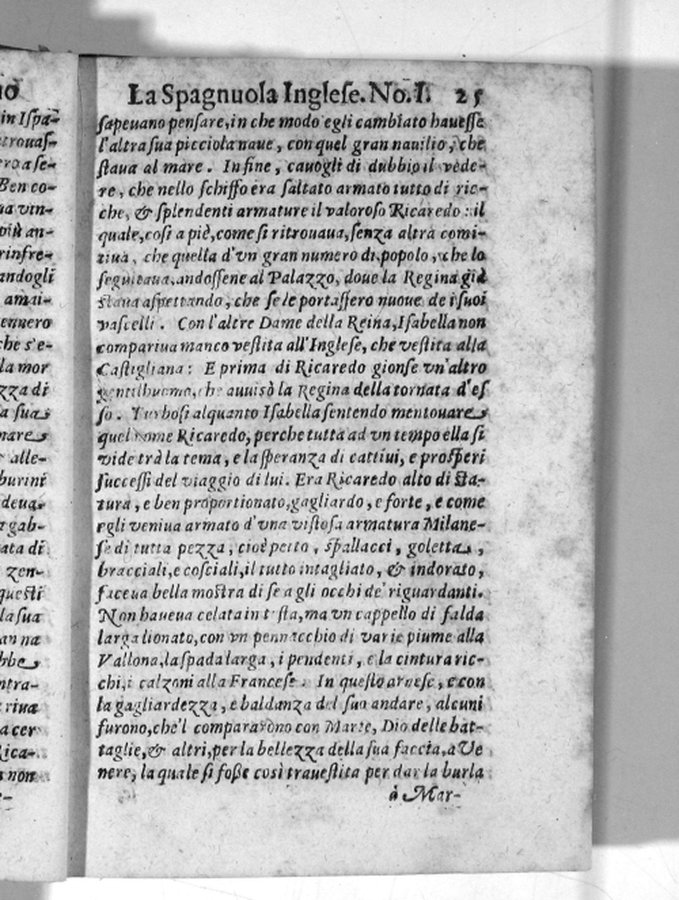 no
in Ispa-
trouas-
tro a se-
Ben co-
ua vin-
più an-
rinfre-
andogli
amai-
ennero
che s'e-
la mor
zza di
a sua
mare
alle-
burini
deua,
gab-
ata di
zen-
questi
la sua
an na
bbe
ntra-
riua
a cer
Rica-
non
La Spagnuola Inglese. No. I. 25
sapeuano pensare, in che modo egli cambiato hauesse
l'altra sua picciola naue, con quel gran nauilio, che
staua al mare. Infine, cauogli di dubbio il vede-
re, che nello schiffo era saltato armato tutto di ric-
che, & splendenti armature il valoroso Ricaredo: il
quale, così a piè, come si ritrouaua, senza altra comi-
tiua, che quella d'vn gran numero di popolo, che lo
seguitaua, andossene al Palazzo, doue la Regina già
staua aspettando, che se le portassero nuoue de i suoi
vascelli. Con l'altre Dame della Reina, Isabella non
compariua manco vestita all'Inglese, che vestita alla
Castigliana: E prima di Ricaredo gionse vn'altro
gentilhuomo, che auuisò la Regina della tornata d'es
so. Turbosi alquanto Isabella sentendo mentouare
quel nome Ricaredo, perche tutta ad vn tempo ella si
vide trà la tema, e la speranza di cattiui, e prosperi
successi del viaggio di lui. Era Ricaredo alto di sta-
tura, e ben proportionato, gagliardo, e forte, e come
egli veniua armato d'vna vistosa armatura Milane-
se di tutta pezza, cioè petto, spallacci, goletta,
bracciali, e cosciali, il tutto intagliato, & indorato,
faceua bella mostra di se a gli occhi de' riguardanti.
Non haueua celata in testa, ma vn cappello di falda
larga lionato, con vn pennacchio di varie piume alla
Vallona, la spada larga, i pendenti, e la cintura ric-
chi, i calzoni alla Francese. In questo arnese, e con
la gagliardezza, e baldanza del suo andare, alcuni
furono, che'l compararono con Marte, Dio delle bat-
taglie, & altri, per la bellezza della sua faccia, a Ve
nere, la quale si fosse così trauestita per dar la burla
à Mar-